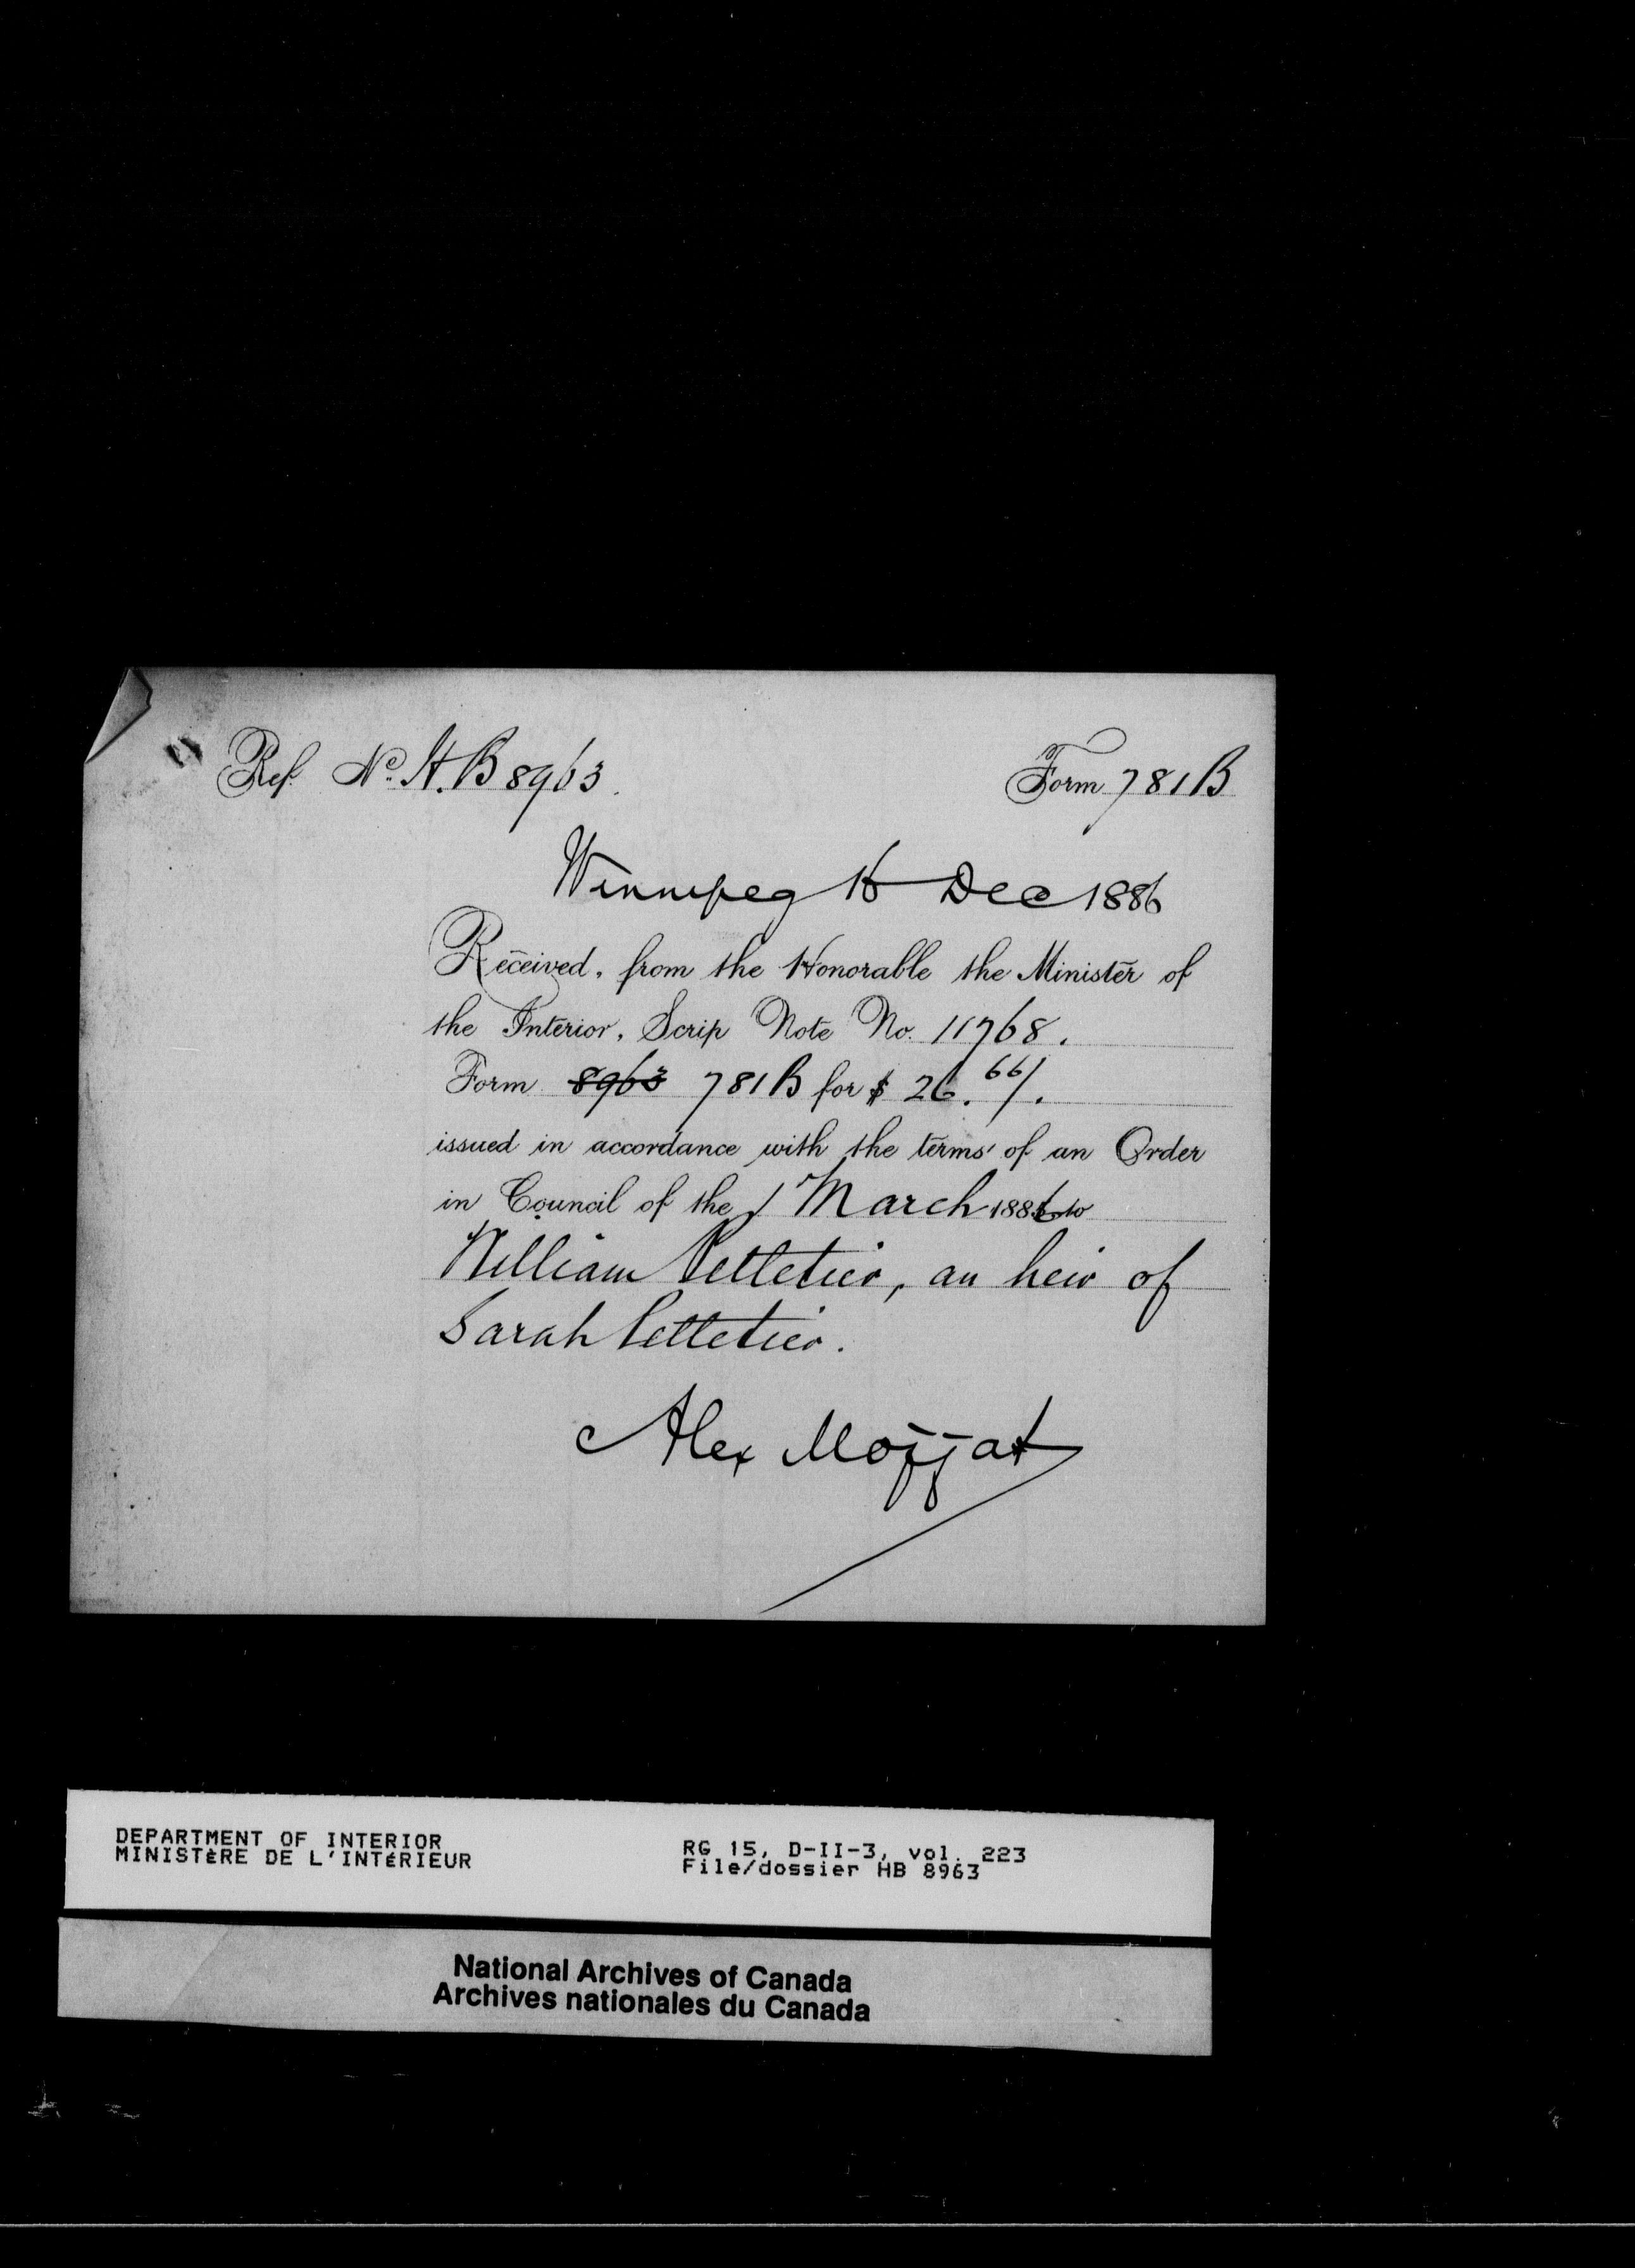 Ref. No. H.B 8963.
Form 781B
Winnipeg 16 Dec 1886
Received, from the Honorable the Minister of
the Interior, Scrip Note No. 11768.
Form 8963 781B for $ 26.66/.
issued in accordance with the terms of an Order
in Council of the 1 March 1886 to
William Pelletier, an heir of
Sarah Pelletier.
Alex Moffat
DEPARTMENT OF INTERIOR
MINISTÈRE DE L'INTÉRIEUR
RG 15, D-II-3, vol. 223
File/dossier HB 8963
National Archives of Canada
Archives nationales du Canada